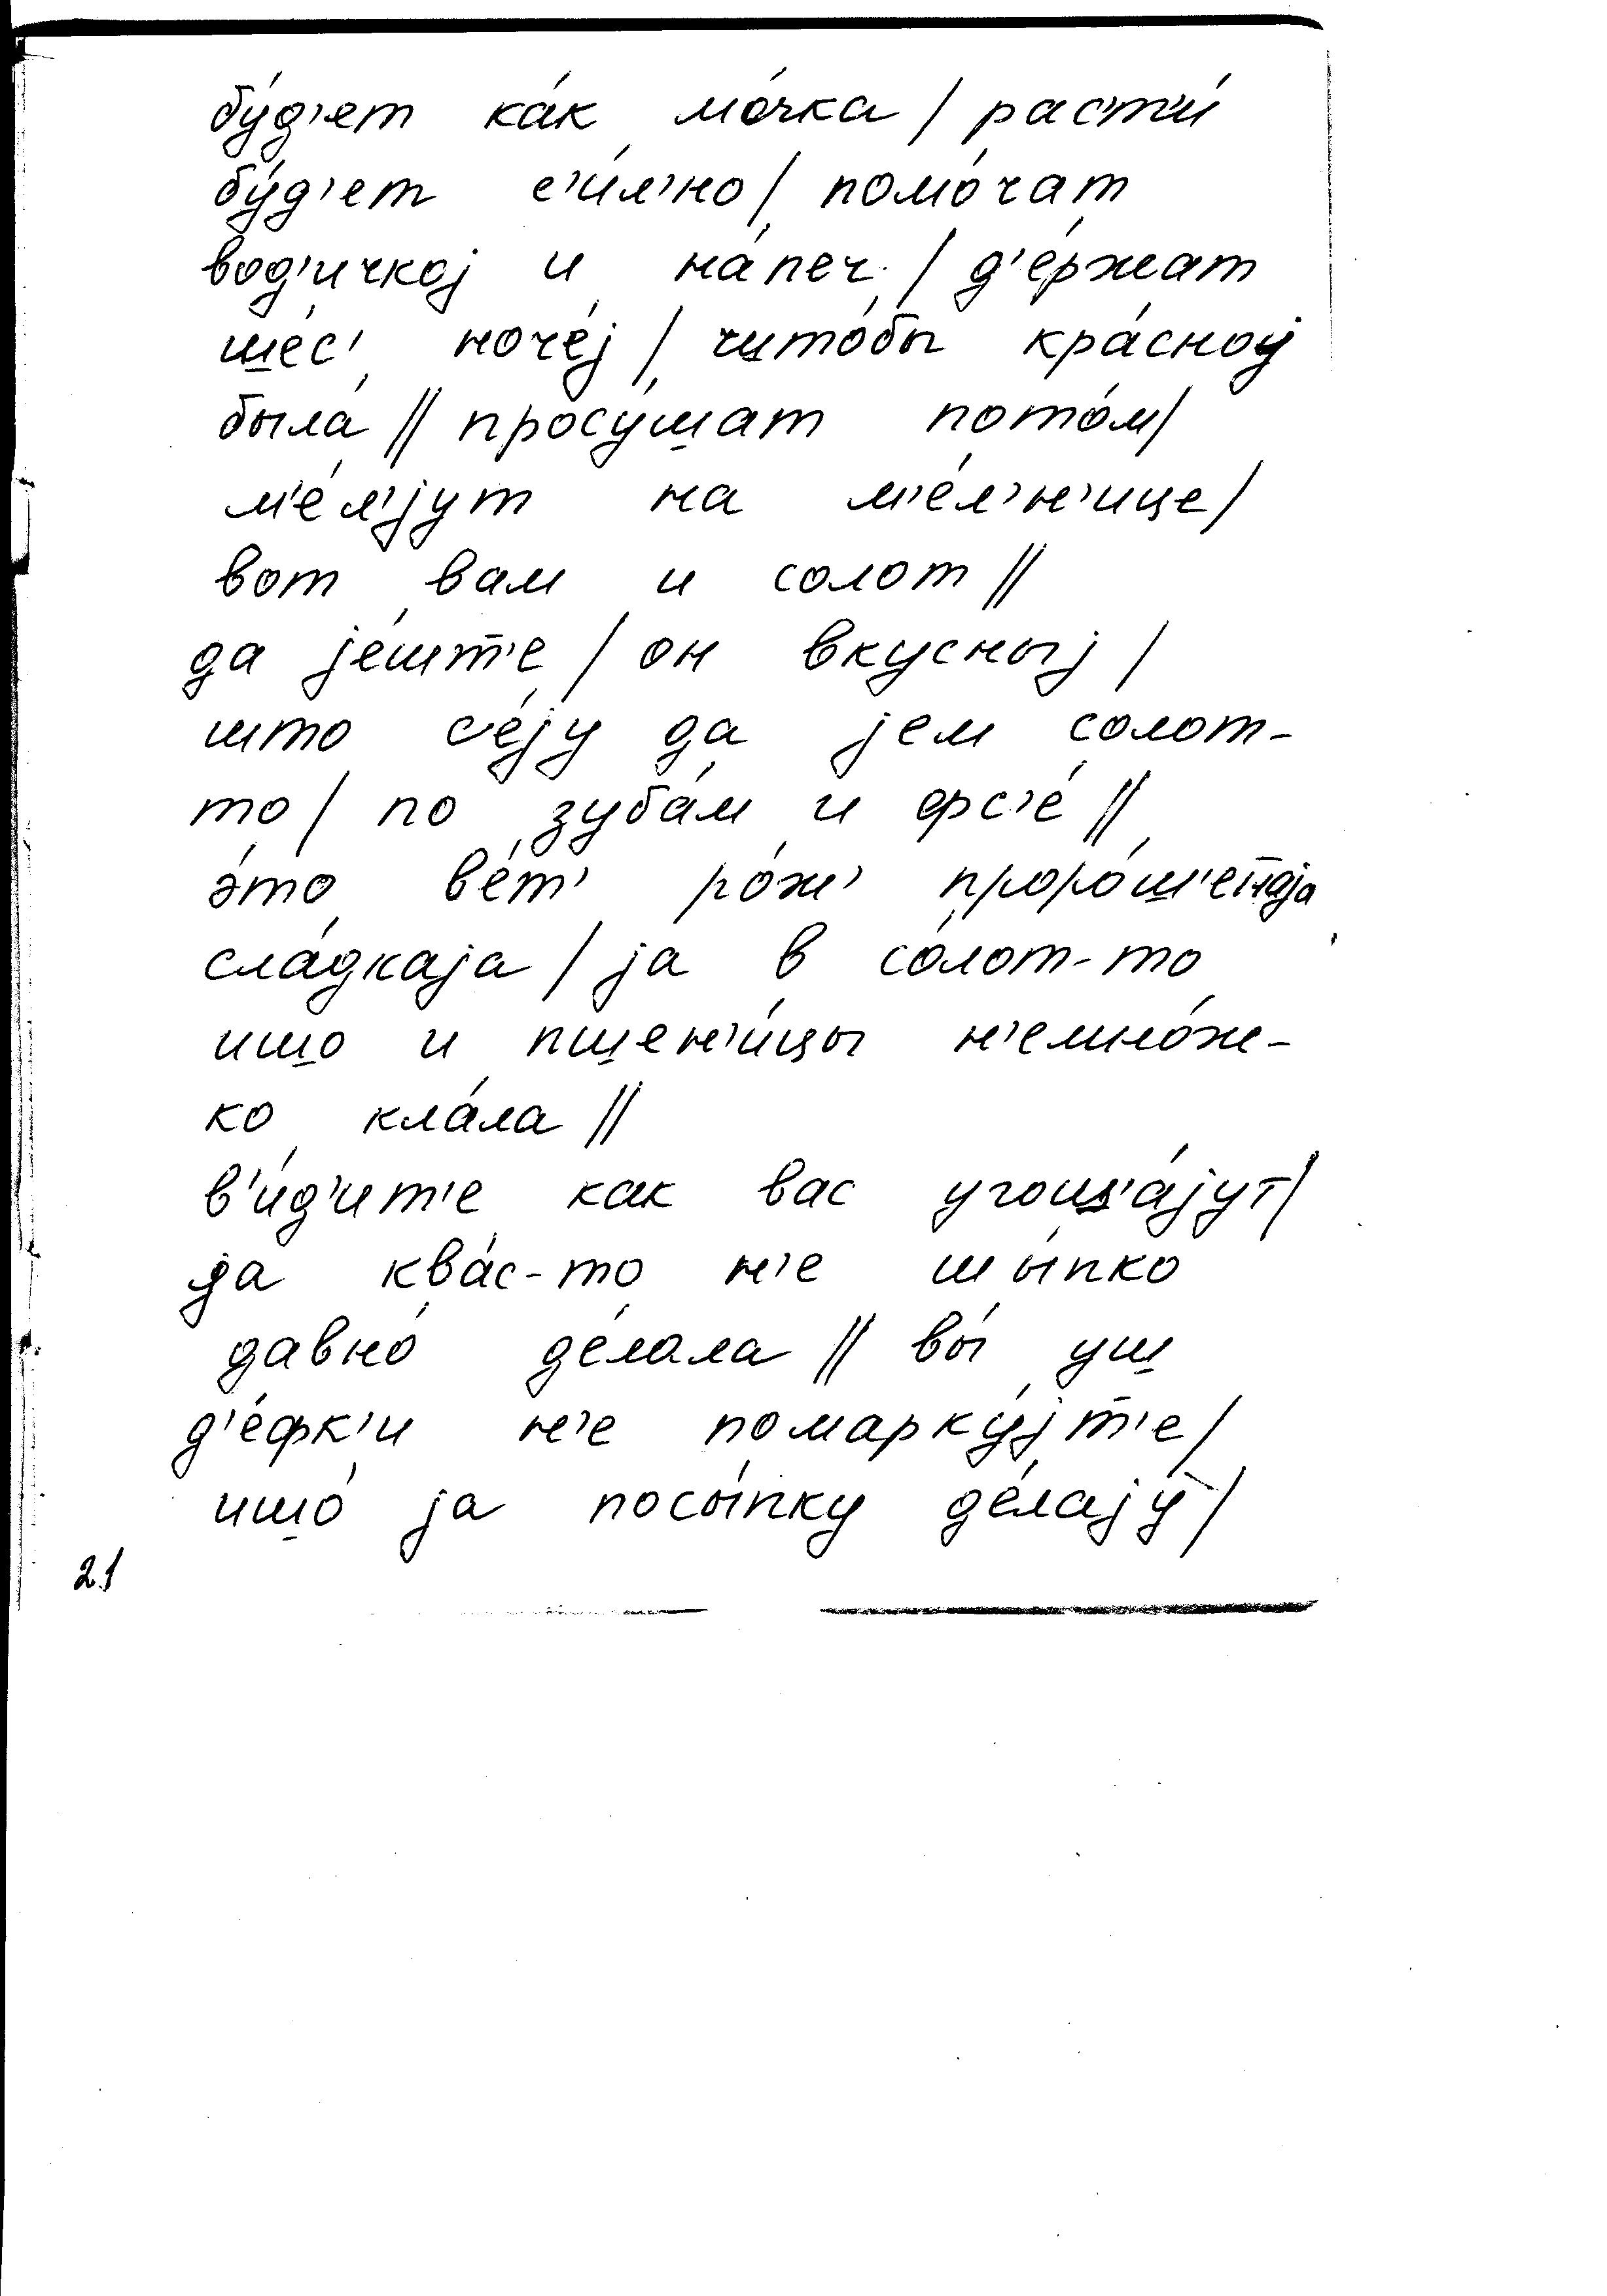 бу́д'ет ка́к мо́чка / раст'и́
бу́д'ет с'и́л'но / помо́чат
вод'ичкоj и на́печ / д'е́ржат
ше́с' ноче́j / чшто́бы кра́сноj
была́ // просу́шат пото́м /
м'е́л'jут на м'е́л'н'ице /
вот вам и солот //
да jе́шт'е / он вкусныj /
што се́jу да jем солот-
то / по зуба́м и фс'е́ //
э́то ве́т' ро́ж' проро́ш'етаjа
сла́дкаjа / jа в со́лот-то
ишо и пшен'и́цы н'емно́ж-
ко кла́ла //
в'и́д'ит'е как вас угощ'а́jут /
да ква́с-то н'е шы́пко
давно́ де́лала // вы́ уш
д'е́фк'и н'е помарку́jт'е /
ишо́ jа посы́пку де́лаjу /
21